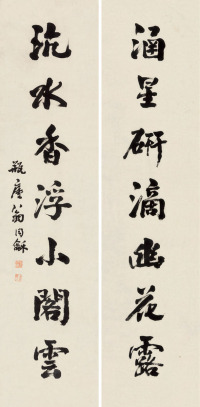 涵星研滴幽花露
沉水香浮小閣雲
瓶廬翁同龢